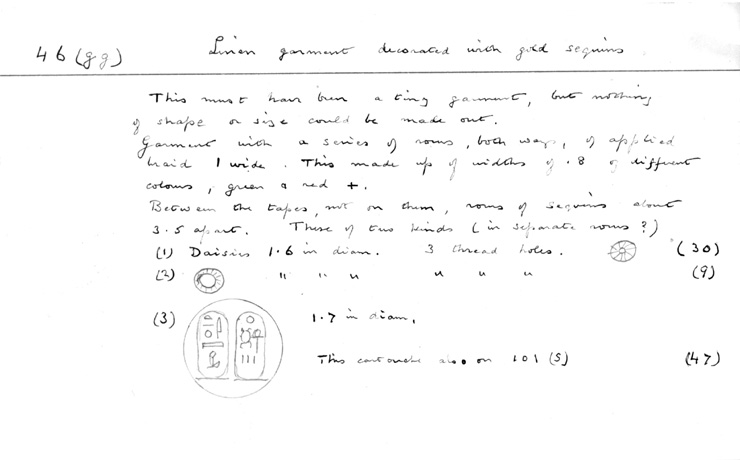 46(gg) Linen garment decorated with gold sequins
This must have been a tiny garment, but nothing
of shape or size could be made out.
Garment with a series of rows, both ways, of applied
braid 1 wide. This made up of widths of .8 of different
colours, green & red +.
Between the tapes, not on them, rows of sequins about
3.5 apart. These of two kinds (in separate rows?)
(1) Daisies 1.6 in diam. 3 thread holes. (30)
(2) " " " " " " (9)
(3) 1.7 in diam,
This cartouche also on 101 (S) (47)